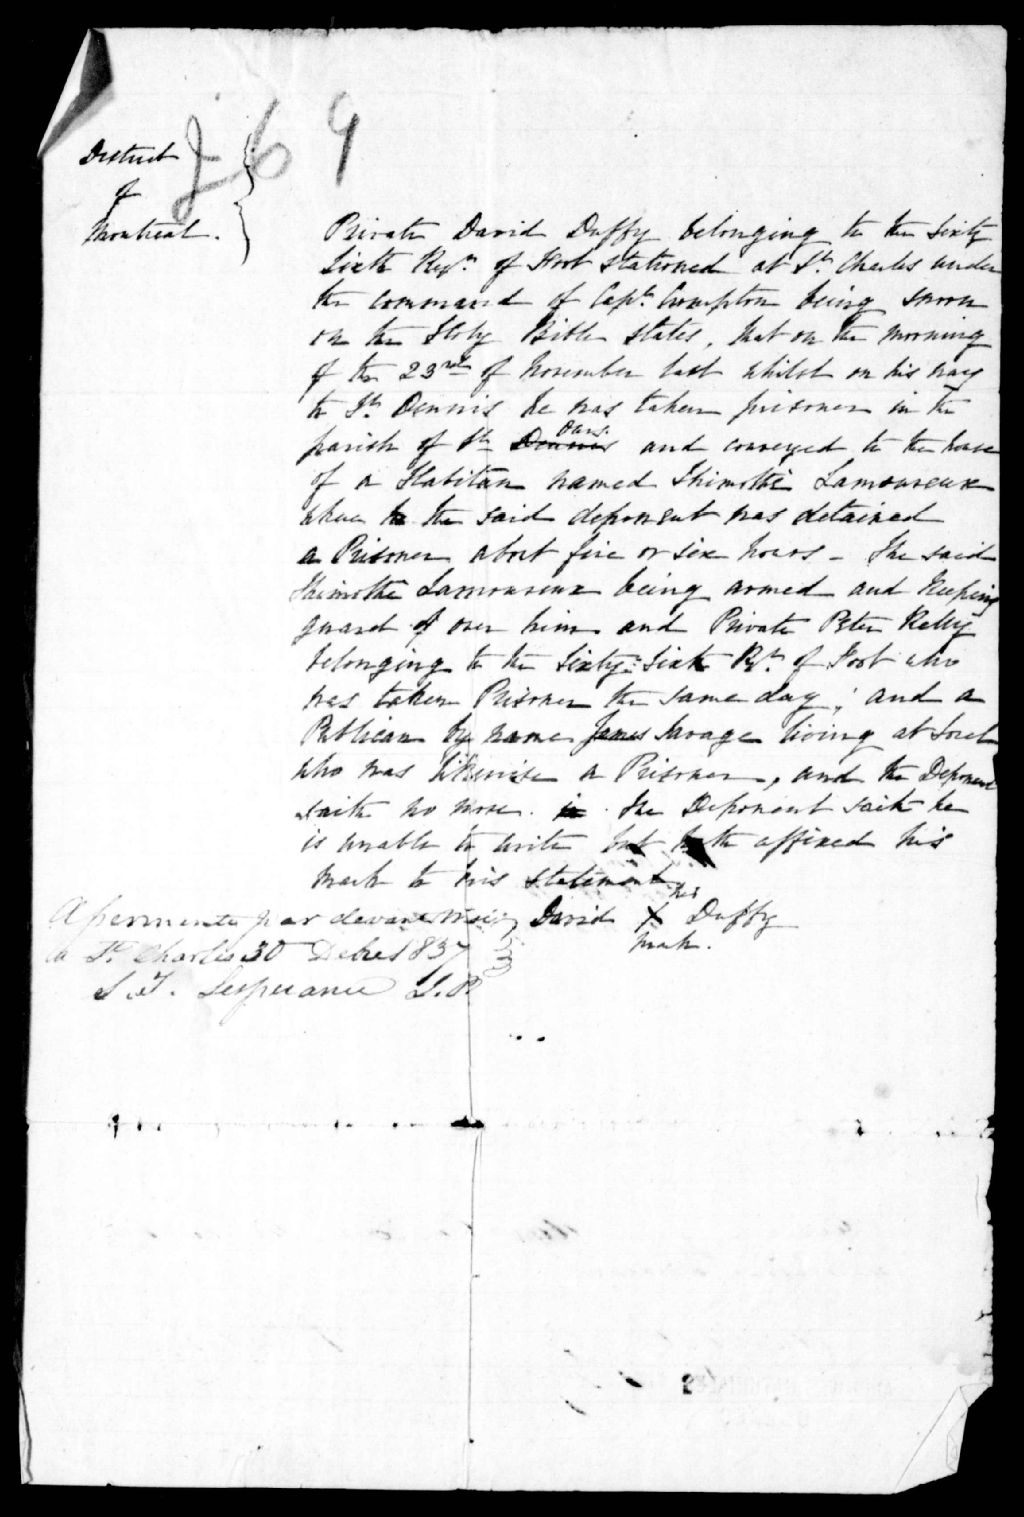 269
District
of
Montreal.
Private David Duffy belonging to the Sixty
Sixth Regt. of Foot stationed at St. Charles under
the command of Capt. Crompton being sworn
on the Holy Bible states, that on the morning
of the 23rd of November last whilst on his way
to St. Dennis he was taken prisoner in the
parish of St. Dennis Ours. and conveyed to the house
of a Habitan named Thimothé Lamoureux
where he the said deponent was detained
a Prisoner about five or six hours - The said
Thimothé Lamoureux being armed and keeping
guard of over him and Private Peter Kelly
belonging to the Sixty Sixth Rgt. of Foot who
was taken Prisoner the same day; and a
Publican by name James Savage living at Sorel
who was likewise a Prisoner, and the Deponent
saith no more. The Deponent saith he
is unable to write but hath affixed his
mark to his statement
his
David X Duffy
mark.
Assermenté par devant moi
a St. Charles 30 Debre 1837
L. T. Lesperance J. P.